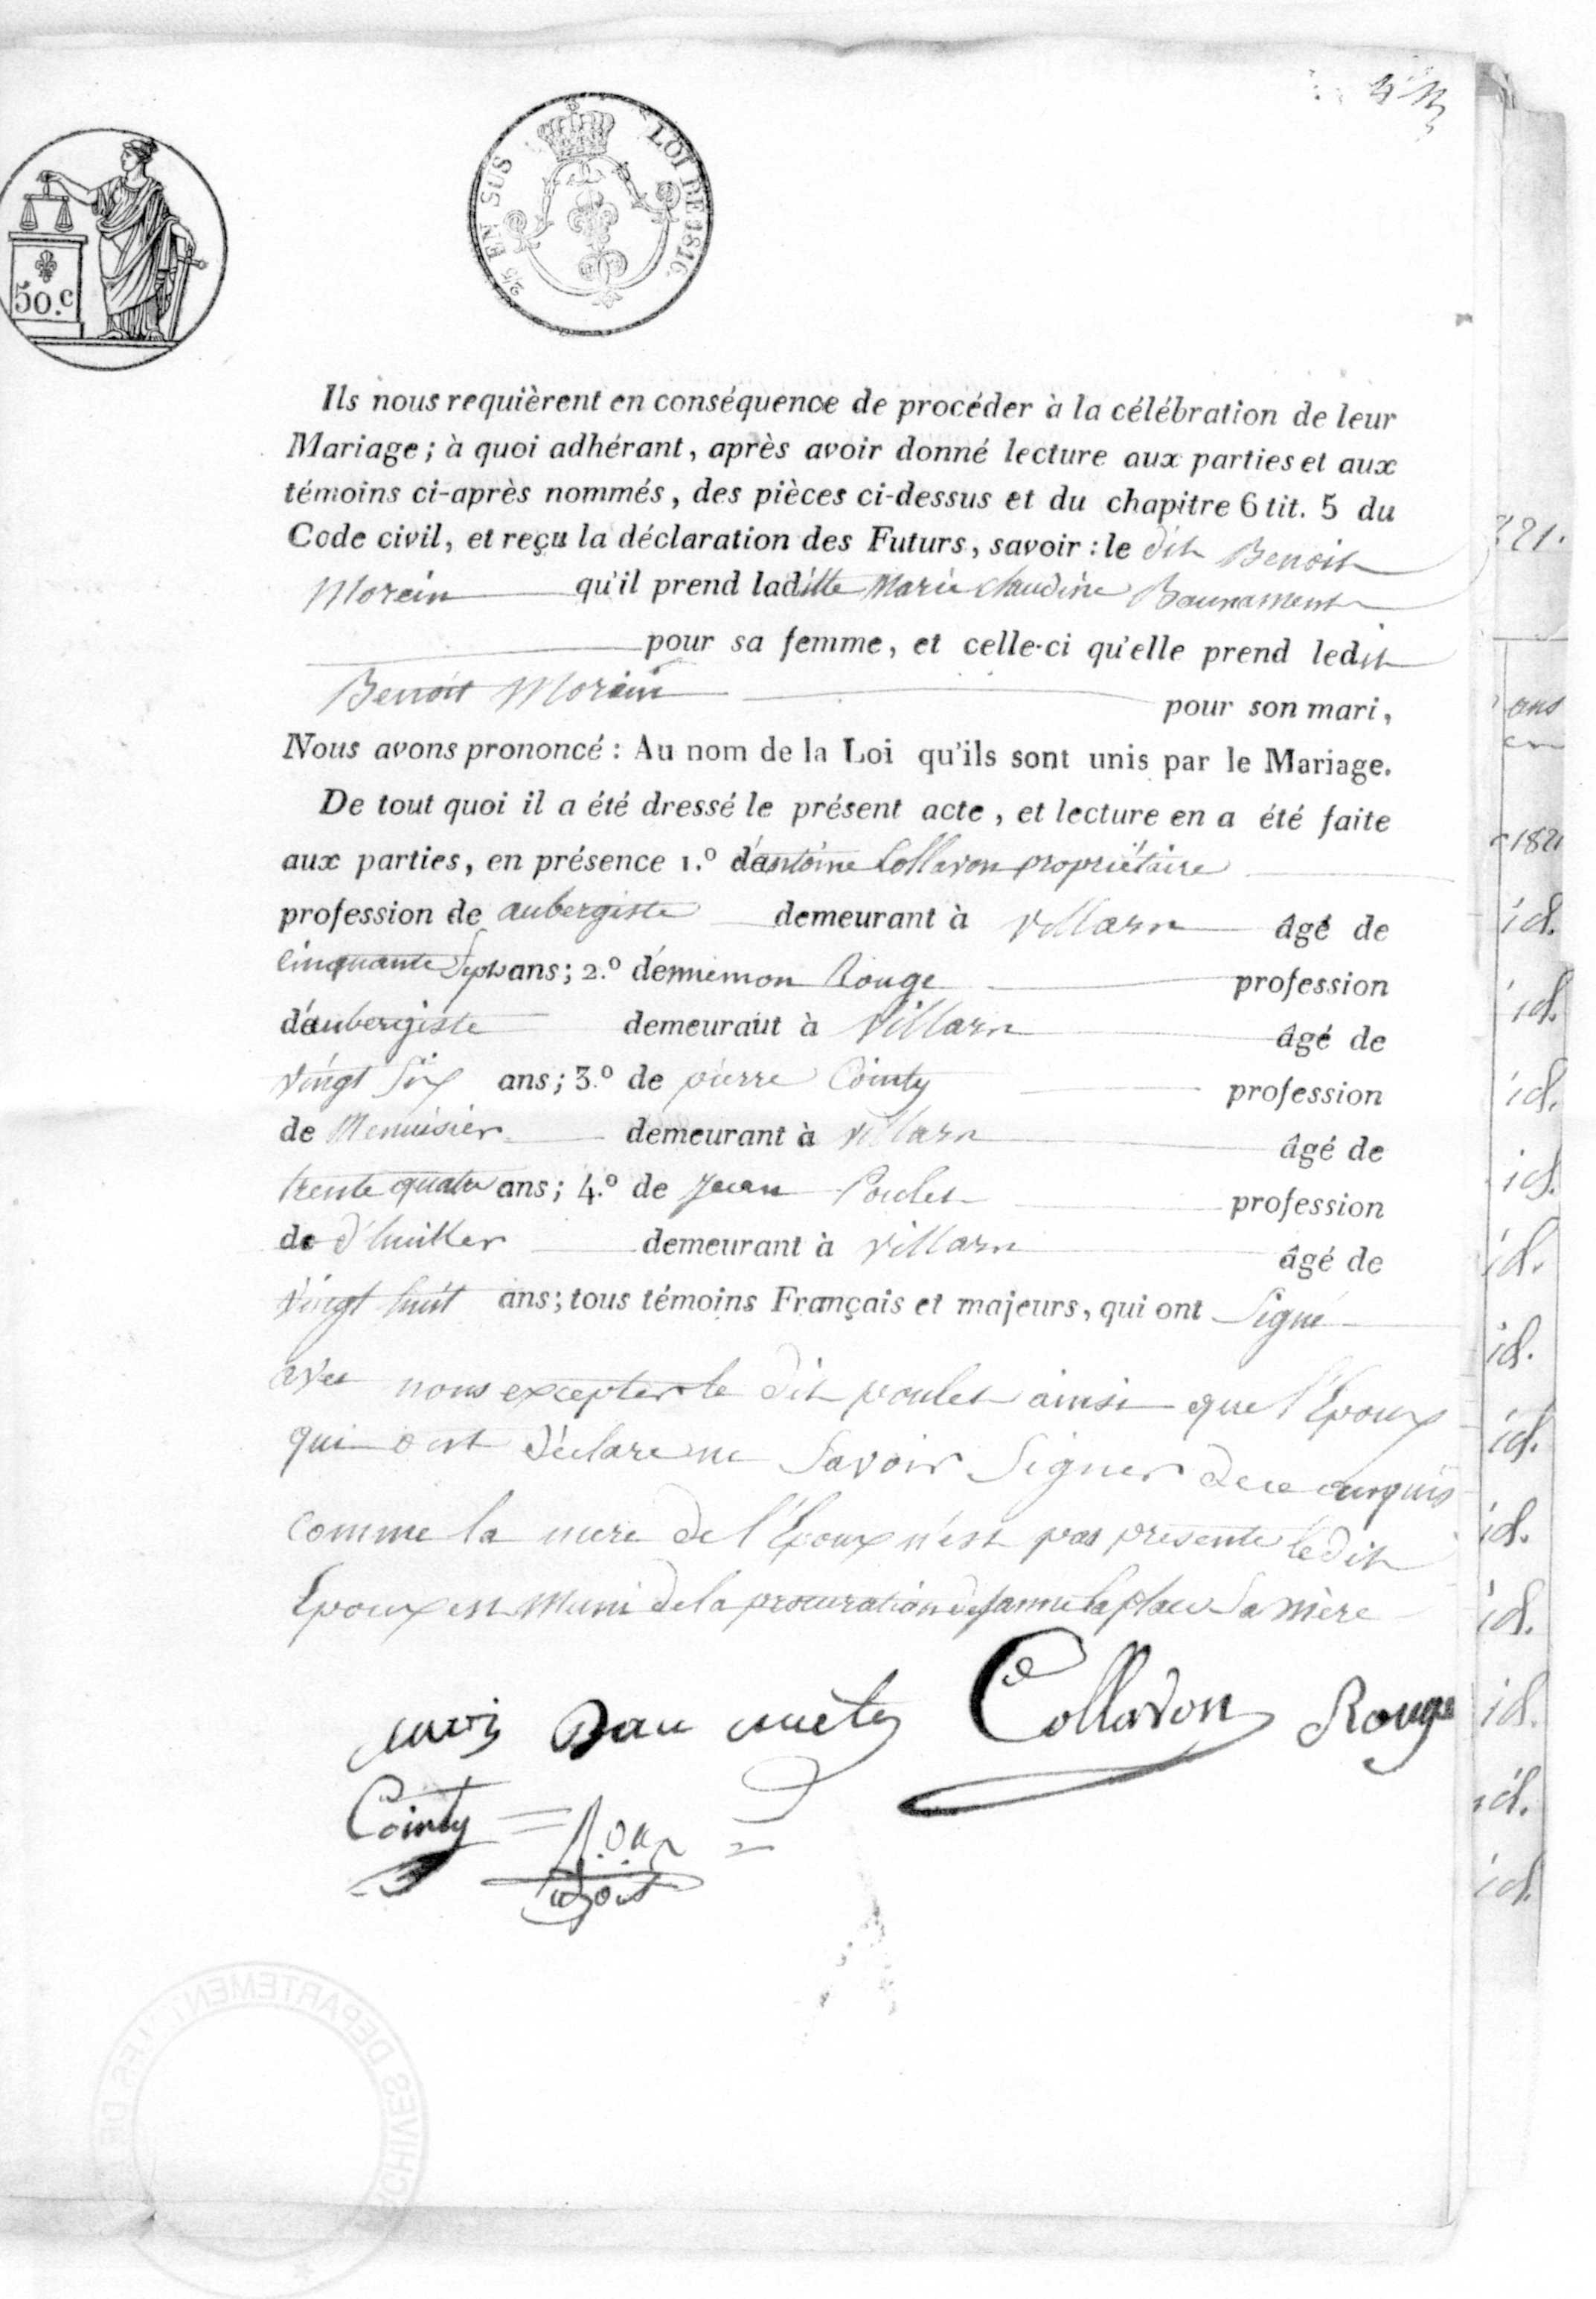 50.c
2/5 EN SUS LOI DE 1816.
Ils nous requièrent en conséquence de procéder à la célébration de leur
Mariage; à quoi adhérant, après avoir donné lecture aux parties et aux
témoins ci-après nommés, des pièces ci-dessus et du chapitre 6 tit. 5 du
Code civil, et reçu la déclaration des Futurs, savoir : le dit Benoit
Morein qu'il prend laditte Marie Claudine
pour sa femme, et celle-ci qu'elle prend ledit
Benoit Morein pour son mari,
Nous avons prononcé : Au nom de la Loi qu'ils sont unis par le Mariage.
De tout quoi il a été dressé le présent acte, et lecture en a été faite
aux parties, en présence 1.º d'antoine Collavon propriétaire
profession de aubergiste demeurant à Villars âgé de
Cinquante Sept ans; 2.º d'ennemon Rouge profession
d'aubergiste demeurant à Villars âgé de
vingt Six ans; 3.º de pierre Cointy profession
de Menuisier demeurant à Villars âgé de
trente quatre ans; 4.º de Jean Poulet profession
de d'huillier demeurant à Villars âgé de
Vingt huit ans; tous témoins Français et majeurs, qui ont Signé
avec nous excepter le dit poulet ainsi que l'Epoux
qui ont déclare ne Savoir Signer de ce enquis
comme la mere de l'Epoux n'est pas presente le dit
Epoux est Muni de la procuration de janne laplace Sa mère
Collavon Rouge
Cointy
821.
ans
en
1821
id.
id.
id.
id.
id.
id.
id.
id.
id.
id.
id.
id.
ARCHIVES DÉPARTEMENTALES DE